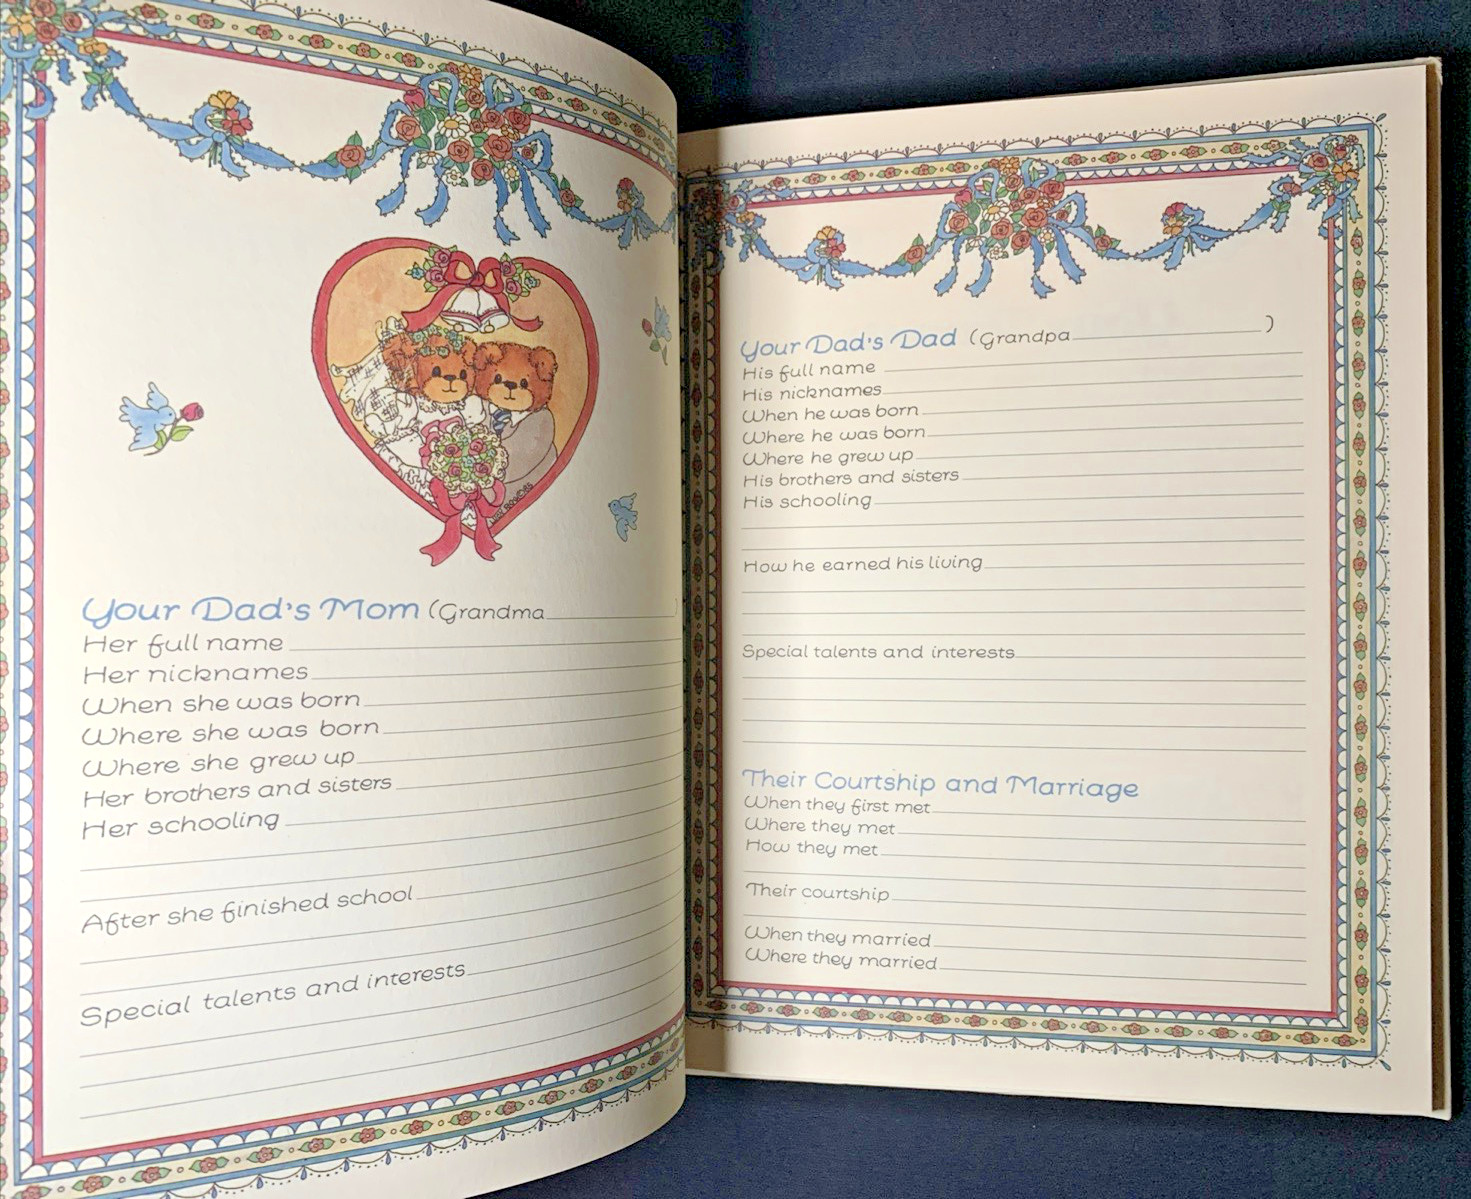 Your Dad's Mom (Grandma )
Her full name
Her nicknames
When she was born
Where she was born
Where she grew up
Her brothers and sisters
Her schooling
After she finished school
Special talents and interests
Your Dad's Dad (Grandpa )
His full name
His nicknames
When he was born
Where he was born
Where he grew up
His brothers and sisters
His schooling
How he earned his living
Special talents and interests
Their Courtship and Marriage
When they first met
Where they met
How they met
Their courtship
When they married
Where they married